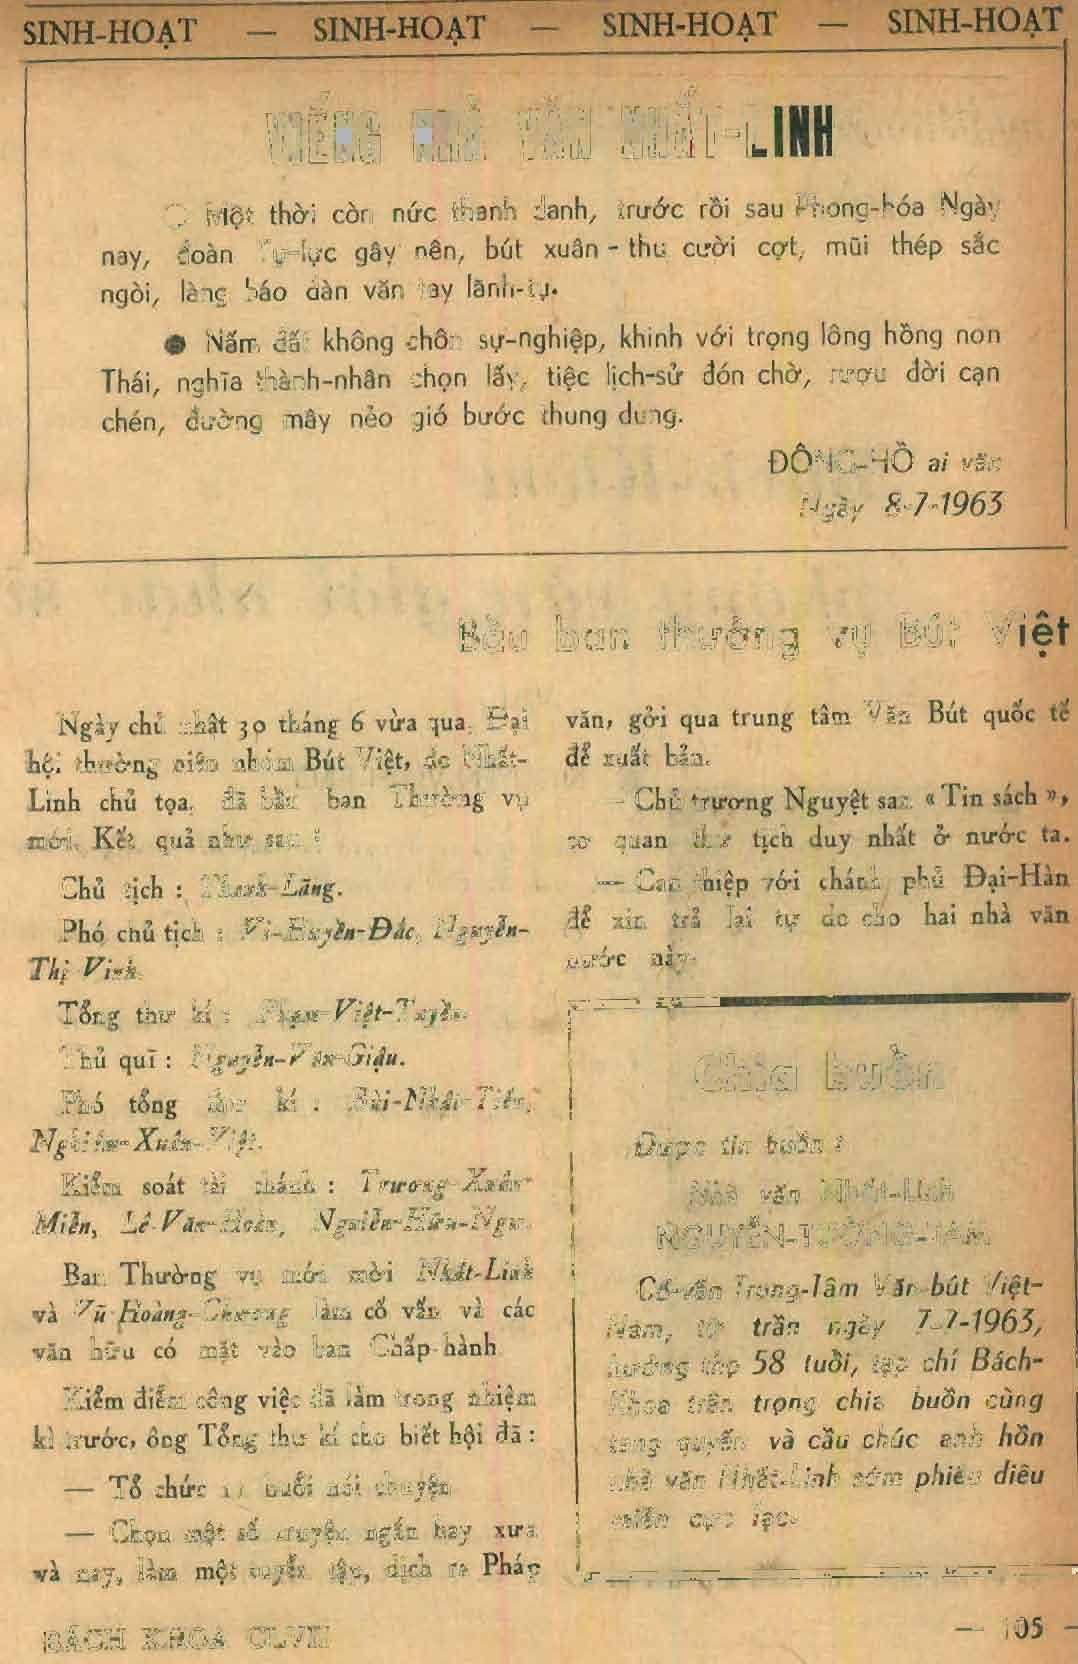 SINH-HOẠT — SINH-HOẠT — SINH-HOẠT — SINH-HOẠT
VIẾNG NHÀ VĂN NHẤT-LINH
Một thời còn nức thanh danh, trước rồi sau Phong-hóa Ngày
nay, đoàn Tự-lực gây nên, bút xuân-thu cười cợt, mũi thép sắc
ngòi, làng báo đàn văn tay lãnh-tụ.
● Nấm đất không chôn sự-nghiệp, khinh với trọng lông hồng non
Thái, nghĩa thành-nhân chọn lấy, tiệc lịch-sử đón chờ, rượu đời cạn
chén, đường mây nẻo gió bước thung dung.
ĐÔNG-HỒ ai vãn
Ngày 8-7-1963
Bầu ban thường vụ Bút Việt
Ngày chủ nhật 30 tháng 6 vừa qua, Đại
hội thường niên nhóm Bút Việt, do Nhất-
Linh chủ tọa, đã bầu ban Thường vụ
mới. Kết quả như sau :
Chủ tịch : Thanh-Lãng.
Phó chủ tịch : Vi-Huyền-Đắc, Nguyễn-
Thị Vinh.
Tổng thư kí : Phạm-Việt-Tuyền.
Thủ quĩ : Nguyễn-Văn-Giậu.
Phó tổng thư kí : Bùi-Nhật-Tiến,
Nghiêm-Xuân-Việt.
Kiểm soát tài chánh : Trương-Xuân-
Miễn, Lê-Văn-Hoàn, Nguiễn-Hữu-Ngư.
Ban Thường vụ mới mời Nhất-Linh
và Vũ-Hoàng-Chương làm cố vấn và các
văn hữu có mặt vào ban Chấp-hành.
Kiểm điểm công việc đã làm trong nhiệm
kì trước, ông Tổng thư kí cho biết hội đã :
— Tổ chức buổi nói chuyện
— Chọn một số truyện ngắn hay xưa
và nay, làm một tuyển tập, dịch ra Pháp
văn, gởi qua trung tâm Văn Bút quốc tế
để xuất bản.
— Chủ trương Nguyệt san « Tin sách »,
cơ quan thư tịch duy nhất ở nước ta.
— Can thiệp với chánh phủ Đại-Hàn
để xin trả lại tự do cho hai nhà văn
nước này.
Chia buồn
Được tin buồn :
Nhà văn Nhất-Linh
NGUYỄN-TƯỜNG-TAM
Cố-vấn Trung-tâm Văn-bút Việt-
Nam, từ trần ngày 7-7-1963,
hưởng thọ 58 tuổi, tạp chí Bách-
Khoa trân trọng chia buồn cùng
tang quyến và cầu chúc anh hồn
nhà văn Nhất-Linh sớm phiêu diêu
miền cực lạc.
BÁCH KHOA CLVII
— 105 —